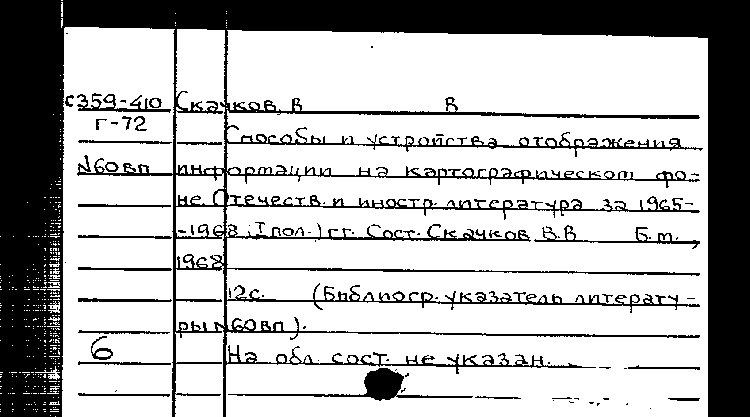 с359-410 Скачков, В В
г-72 Способы и устройства отображения
N60вп информации на картографическом фо-
не. Отечеств. и иностр. литература за 1965-
-1968 (I пол.) гг. Сост. Скачков В.В Б.м.,
1968
12с. (Библиогр. указатель литерату-
ры N60вп).
6 На обл. сост. не указан.